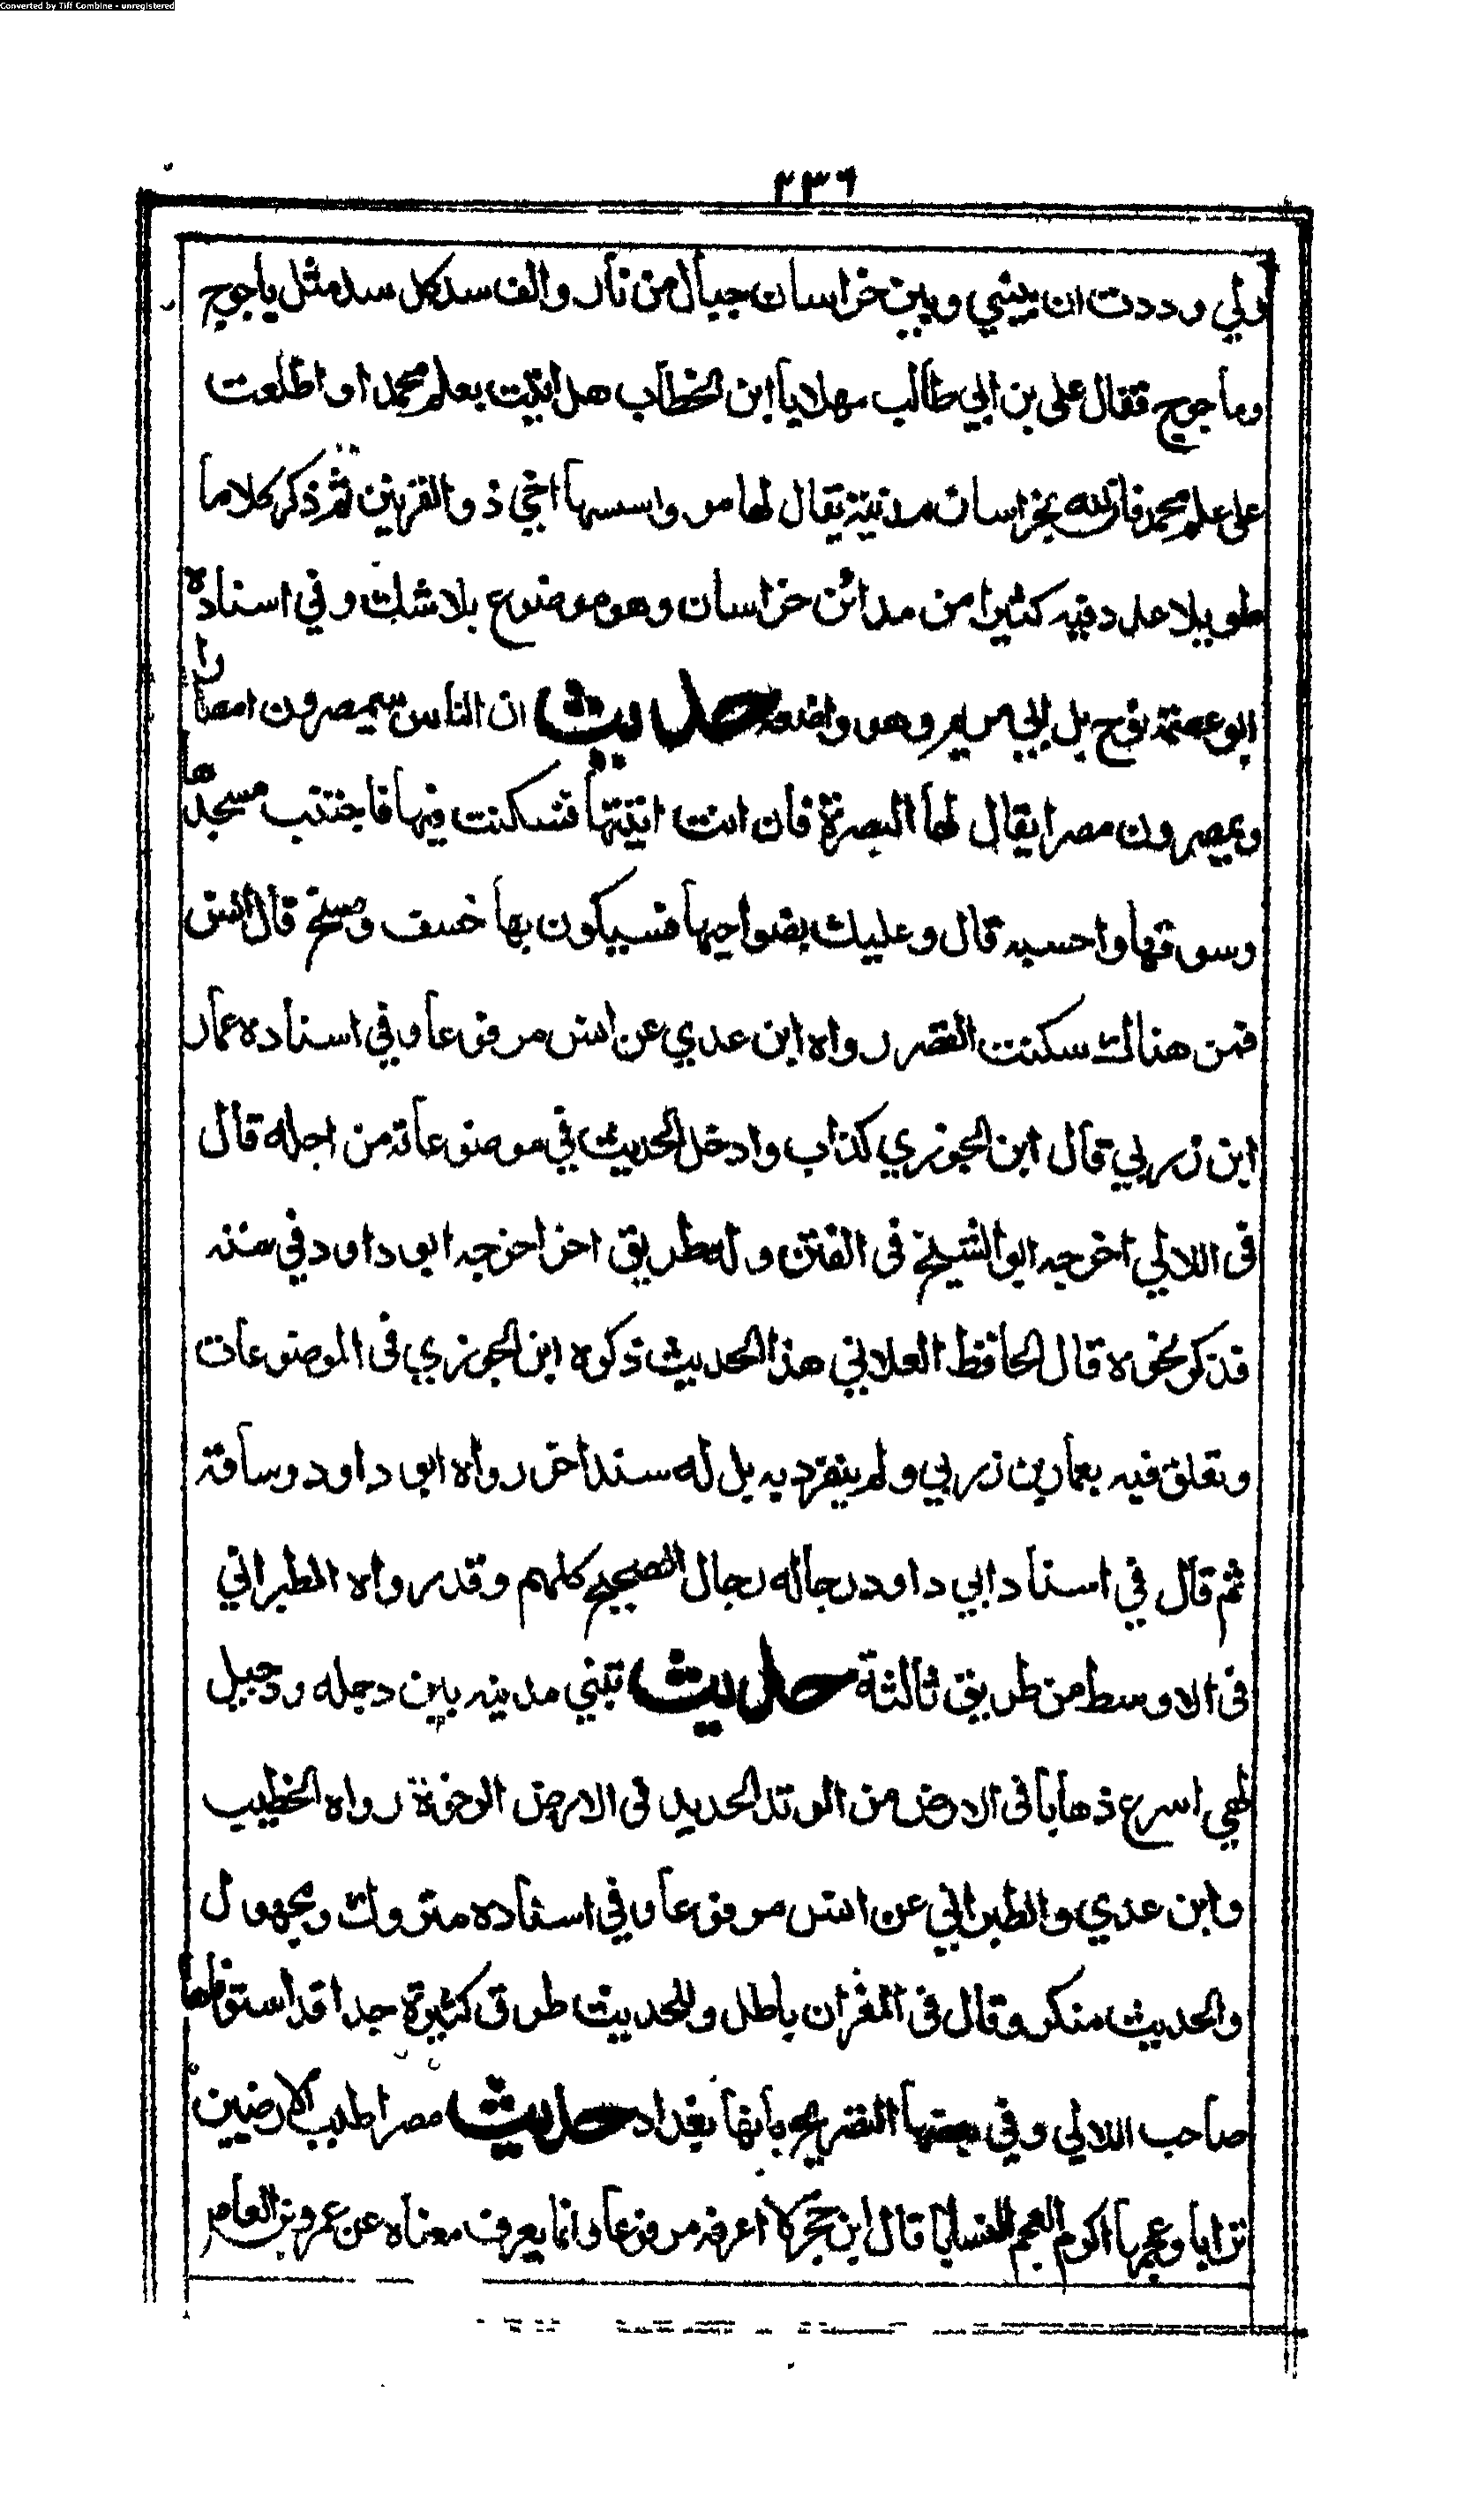 Converted by Tiff Combine - unregistered
٢٣٦
ولي وددت ان بيني وبين خراسان جبال من نار والف سد كل سد مثل ياجوج
وماجوج فقال على بن ابي طالب مهلا يا ابن الخطاب هل اتيت بعلم محمد او اطلعت
على علم محمد فان لله بخراسان مدينة يقال لها مرو اسسها اخي ذو القرنين ثم ذكر كلاما
طويلا عدد فيه كثيرا من مدائن خراسان وهو موضوع بلا شك وفي اسناده
ابو عصمة نوح بن ابي مريم وهو واضعه حديث ان الناس سيمصرون امصارا
ويمصرون مصرا يقال لها البصرة فان انت اتيتها فسكنت فيها فاجتنب مسجدها
وسوقها واحسبه قال وعليك بضواحيها فسيكون بها خسف ومسخ قال انس
فمن هناك سكنت القصر رواه ابن عدي عن انس مرفوعا وفي اسناده عمار
ابن زربي قال ابن الجوزي كذاب وادخل الحديث في موضوعاته من اجله قال
فى اللالي اخرجه ابو الشيخ فى الفتن وله طريق اخر اخرجه ابو داود في سننه
فذكر نحوه قال الحافظ العلائي هذا الحديث ذكره ابن الجوزي فى الموضوعات
وتعلق فيه بعمار بن زربي ولم ينفرد به بل له سند اخر رواه ابو داود وساقه
ثم قال في اسناد ابي داود رجاله رجال الصحيح كلهم وقد رواه الطبراني
فى الاوسط من طريق ثالثة حديث تبني مدينه بين دجله ودجيل
لهي اسرع ذهابا فى الارض من الوتد الحديد فى الارض الرخوة رواه الخطيب
وابن عدي والطبراني عن انس مرفوعا وفي اسناده متروك ومجهول
والحديث منكر وقال فى الميزان باطل وللحديث طرق كثيرة جدا قد استوفاها
صاحب اللالي وفي بعضها التصريح بانها بغداد حديث مصر اطيب الارضين
ترابا وعجمها اكرم العجم انسابا قال ابن حجر لا اعرفه مرفوعا وانما يعرف معناه عن عمرو بن العاص